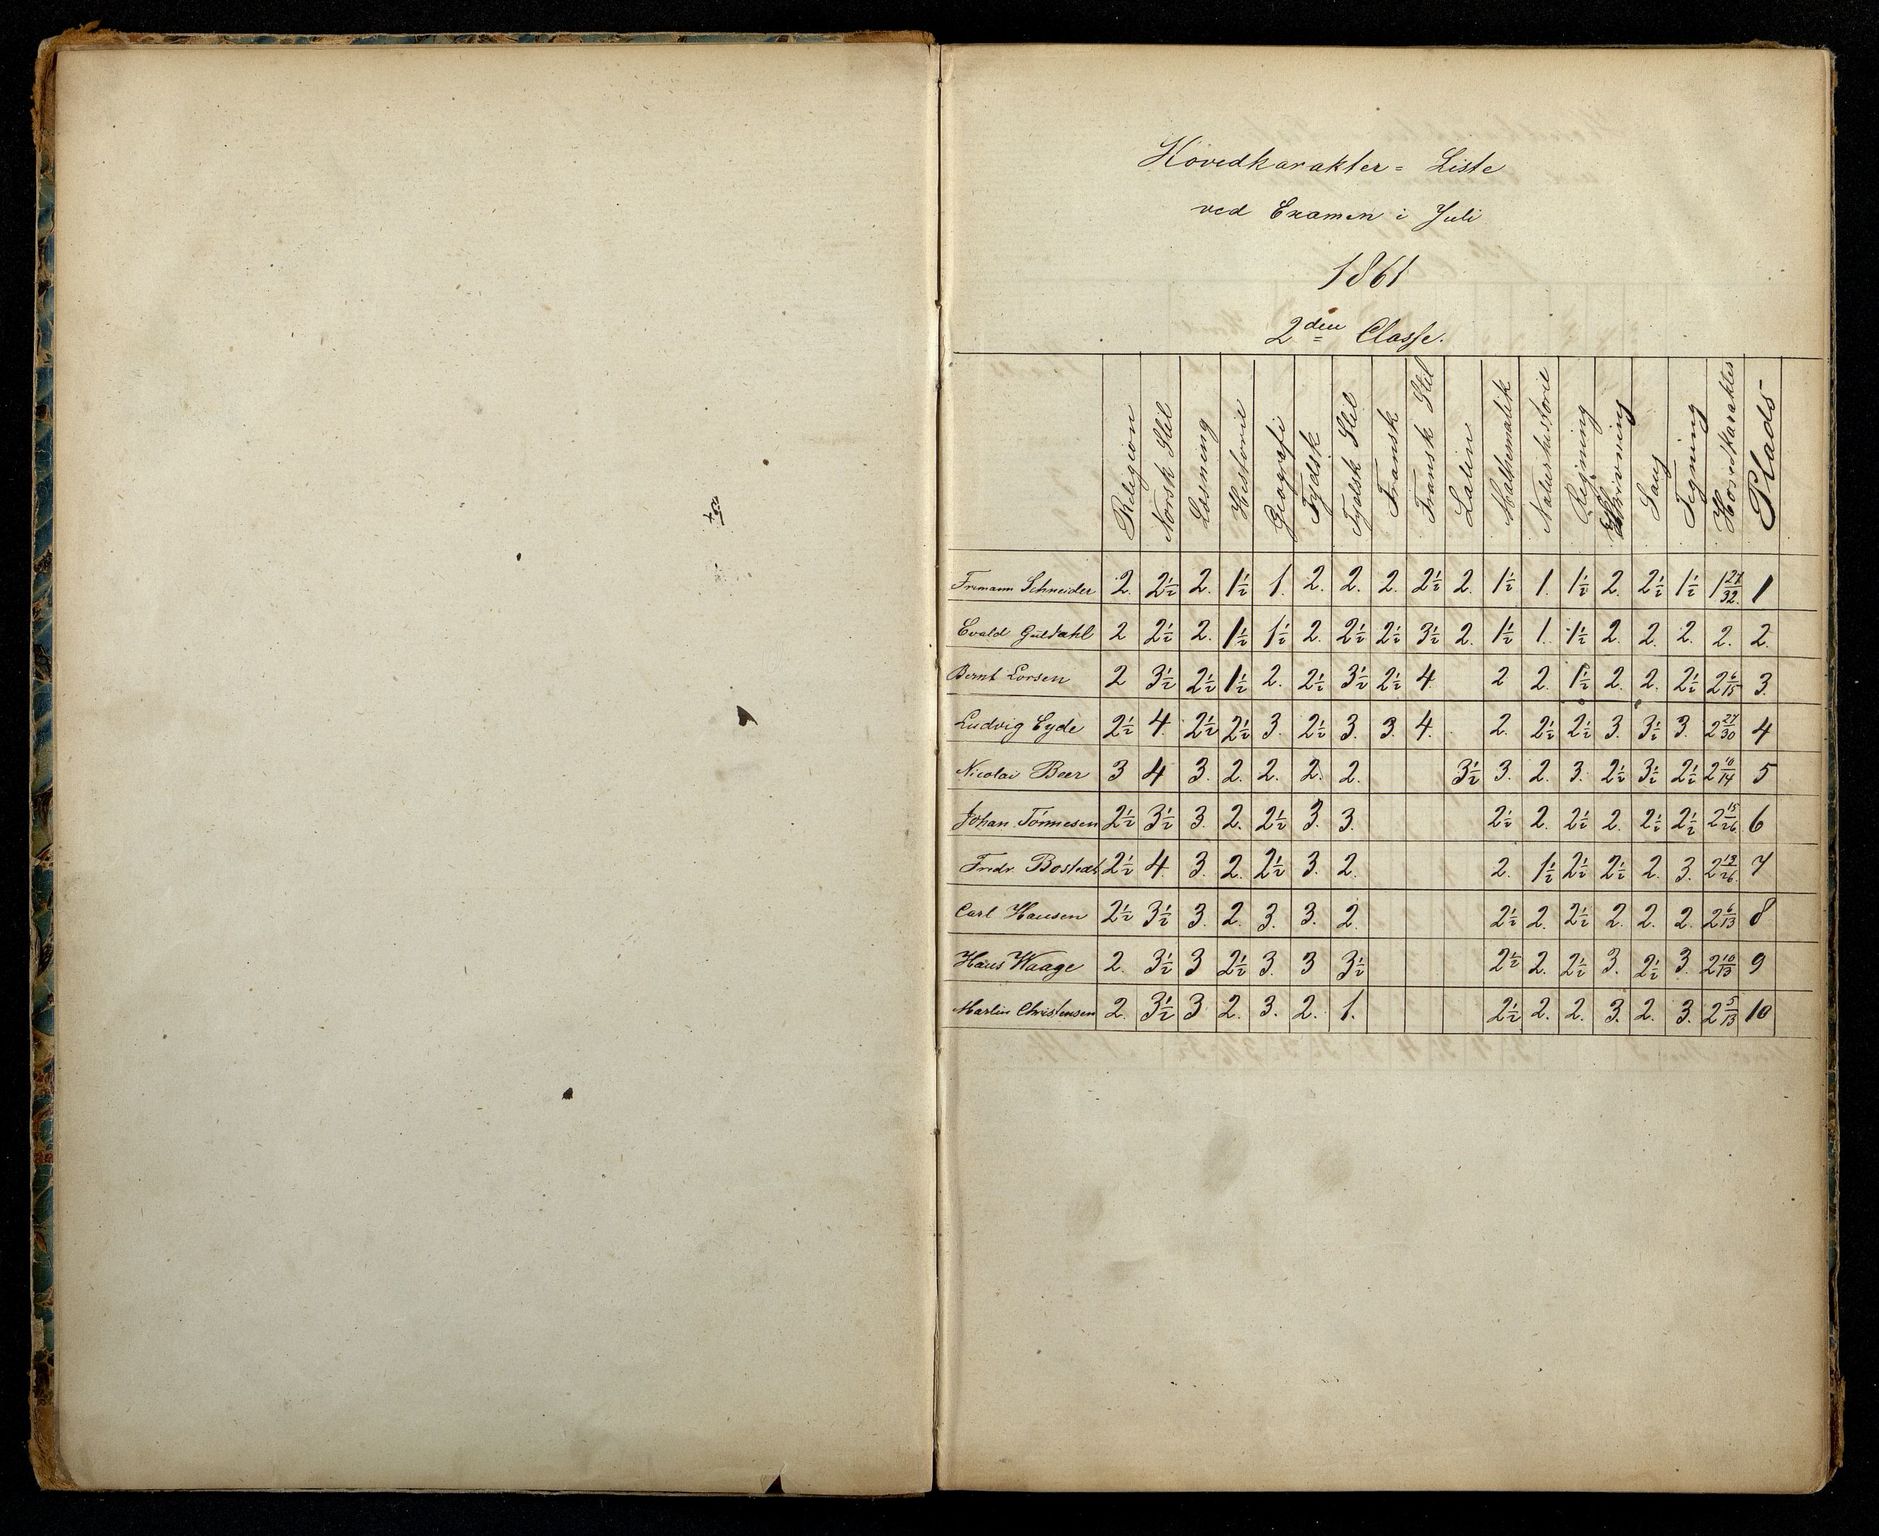 Hovedkarakter = Liste
ved Examen i Juli
1861
2den Classe.
Religion Norsk Stil Læsning Historie Geografi Tydsk Tydsk Stil Fransk Fransk Stil Latin Mathematik Naturhistorie Regning Skrivning Sang Tegning Hovedkarakter Plads
Frimann Schneider 2. 2½ 2. 1½ 1. 2. 2. 2. 2½ 2. 1½ 1. 1½ 2. 2½ 1½ 1 27/32. 1
Evald Güldahl 2 2½ 2. 1½ 1½ 2. 2½ 2½ 3½ 2. 1½ 1. 1½ 2. 2. 2. 2. 2.
Bernt Lorsen 2 3½ 2½ 1½ 2. 2½ 3½ 2½ 4. 2 2. 1½ 2. 2. 2½ 2 6/15 3.
Ludvig Eyde 2½ 4. 2½ 2½ 3. 2½ 3. 3. 4. 2. 2½ 2½ 3. 3½ 3. 2 27/30 4
Nicolai Beer 3 4 3. 2. 2. 2. 2. 3½ 3. 2. 3. 2½ 3½ 2½ 2 10/14 5
Johan Tönnesen 2½ 3½ 3. 2. 2½ 3. 3. 2½ 2. 2½ 2. 2½ 2½ 2 15/26. 6
Fredr. 2½ 4. 3. 2. 2½ 3. 2. 2. 1½ 2½ 2½ 2. 3. 2 12/26. 7
Carl Hansen 2½ 3½ 3. 2. 3. 3. 2. 2½ 2. 2½ 2. 2. 2. 2 6/13 8
Hans Waage 2. 3½ 3 2½ 3. 3 3½ 2½ 2. 2½ 3. 2½ 3. 2 10/13 9
Martin Christensen 2. 3½ 3 2. 3. 2. 1. 2½ 2. 2. 3. 2. 3. 2 5/13 10